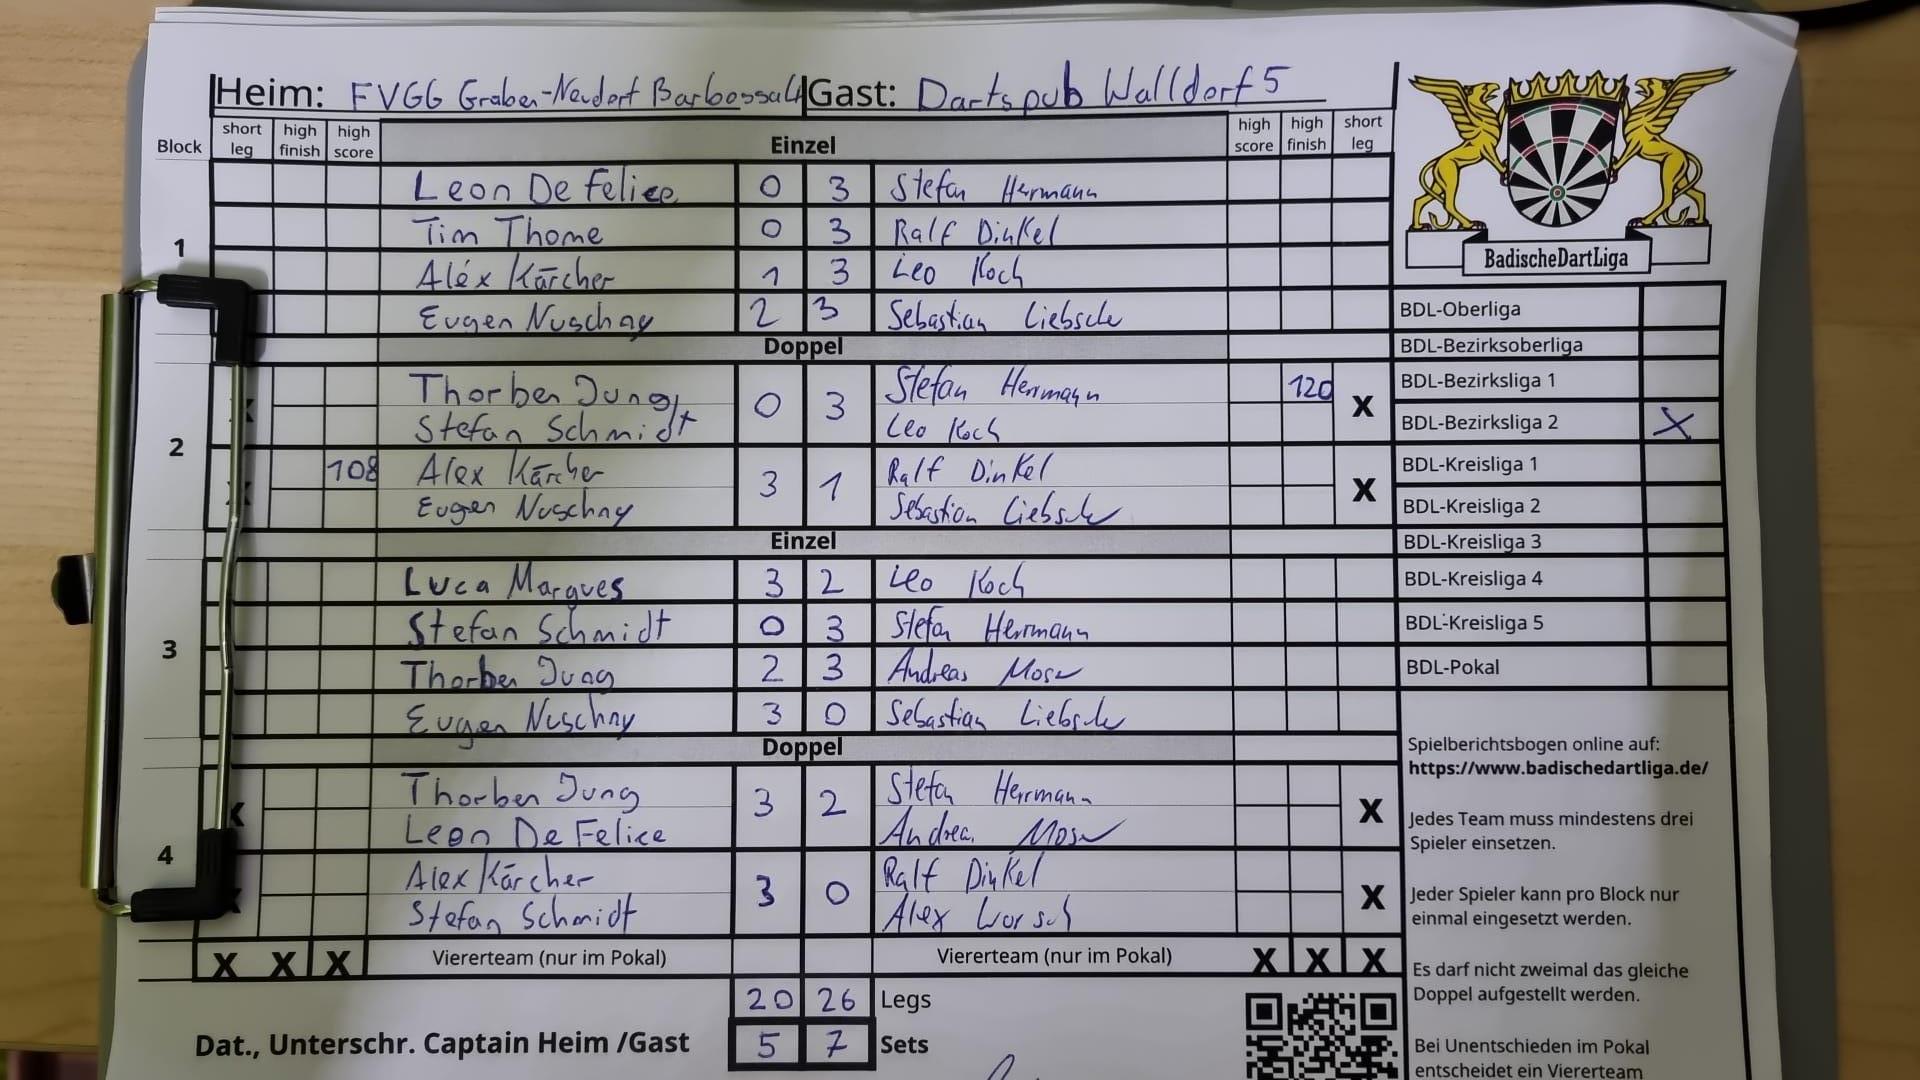 Heim: FVGG Graben-Neudorf Barbossa Gast: Dartspub Walldorf 5
Block short leg high finish high score Einzel high score high finish short leg
1
Leon De Felice 0 3 Stefan Herrmann
Tim Thome 0 3 Ralf Dinkel
Alex Kärcher 1 3 Leo Koch
Eugen Nuschny 2 3 Sebastian Liebsch
Doppel
2
Thorben Jung 0 3 Stefan Herrmann 120 X
Stefan Schmidt Leo Koch
X 108 Alex Kärcher 3 1 Ralf Dinkel X
Eugen Nuschny Sebastian Liebsch
Einzel
3
Luca Marques 3 2 Leo Koch
Stefan Schmidt 0 3 Stefan Herrmann
Thorben Jung 2 3 Andreas Moser
Eugen Nuschny 3 0 Sebastian Liebsch
Doppel
4
X Thorben Jung 3 2 Stefan Herrmann X
Leon De Felice Andrea Moser
Alex Kärcher 3 0 Ralf Dinkel X
Stefan Schmidt Alex
X X X Viererteam (nur im Pokal) Viererteam (nur im Pokal) X X X
20 26 Legs
Dat., Unterschr. Captain Heim /Gast 5 7 Sets
BadischeDartLiga
BDL-Oberliga
BDL-Bezirksoberliga
BDL-Bezirksliga 1
BDL-Bezirksliga 2 X
BDL-Kreisliga 1
BDL-Kreisliga 2
BDL-Kreisliga 3
BDL-Kreisliga 4
BDL-Kreisliga 5
BDL-Pokal
Spielberichtsbogen online auf:
https://www.badischedartliga.de/
Jedes Team muss mindestens drei
Spieler einsetzen.
Jeder Spieler kann pro Block nur
einmal eingesetzt werden.
Es darf nicht zweimal das gleiche
Doppel aufgestellt werden.
Bei Unentschieden im Pokal
entscheidet ein Viererteam